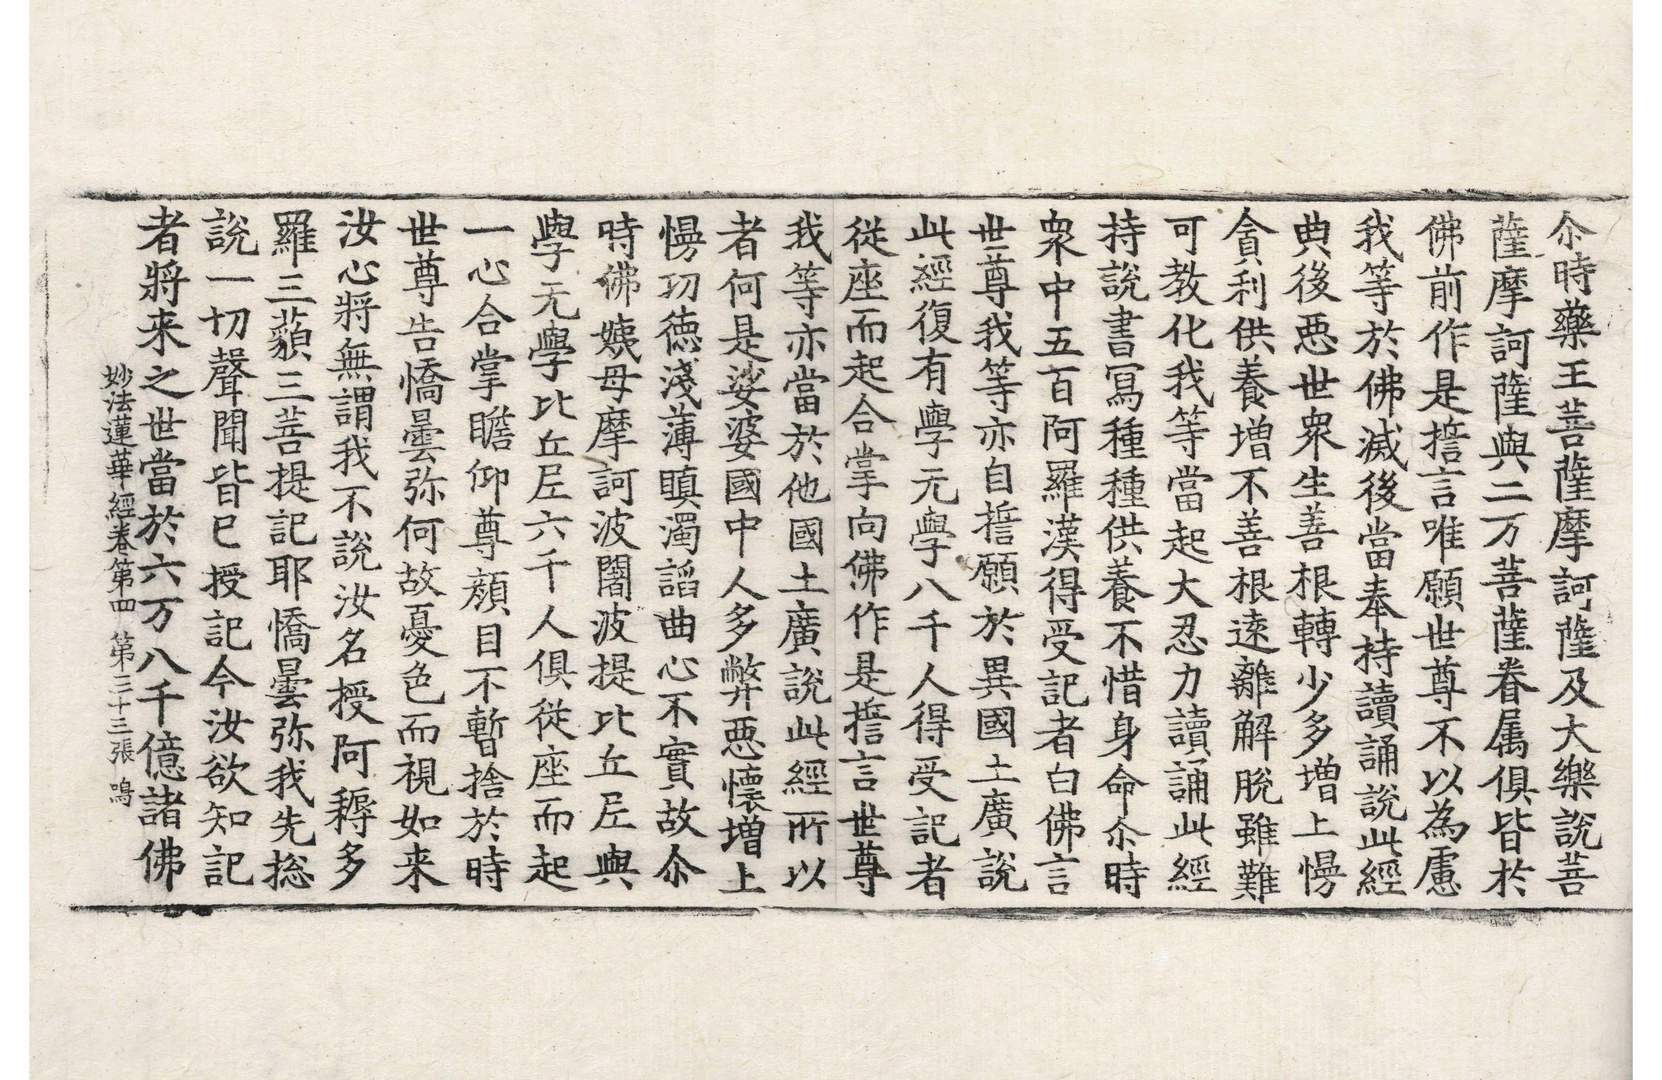 尒時藥王菩薩摩訶薩及大樂說菩
薩摩訶薩與二万菩薩眷属俱皆於
佛前作是誓言唯願世尊不以為慮
我等於佛滅後當奉持讀誦說此經
典後惡世衆生善根轉少多增上慢
貪利供養增不善根遠離解脫雖難
可教化我等當起大忍力讀誦此經
持說書寫種種供養不惜身命尒時
衆中五百阿羅漢得受記者白佛言
世尊我等亦自誓願於異國土廣說
此經復有學无學八千人得受記者
從座而起合掌向佛作是誓言世尊
我等亦當於他國土廣說此經所以
者何是娑婆國中人多弊惡懷增上
慢功德淺薄瞋濁諂曲心不實故尒
時佛姨母摩訶波闍波提比丘尼與
學无學比丘尼六千人俱從座而起
一心合掌瞻仰尊顔目不暫捨於時
世尊告憍曇弥何故憂色而視如来
汝心將無謂我不說汝名授阿耨多
羅三藐三菩提記耶憍曇弥我先捴
說一切聲聞皆已授記今汝欲知記
者將来之世當於六万八千億諸佛
妙法蓮華經卷第四 第三十三張 鳴